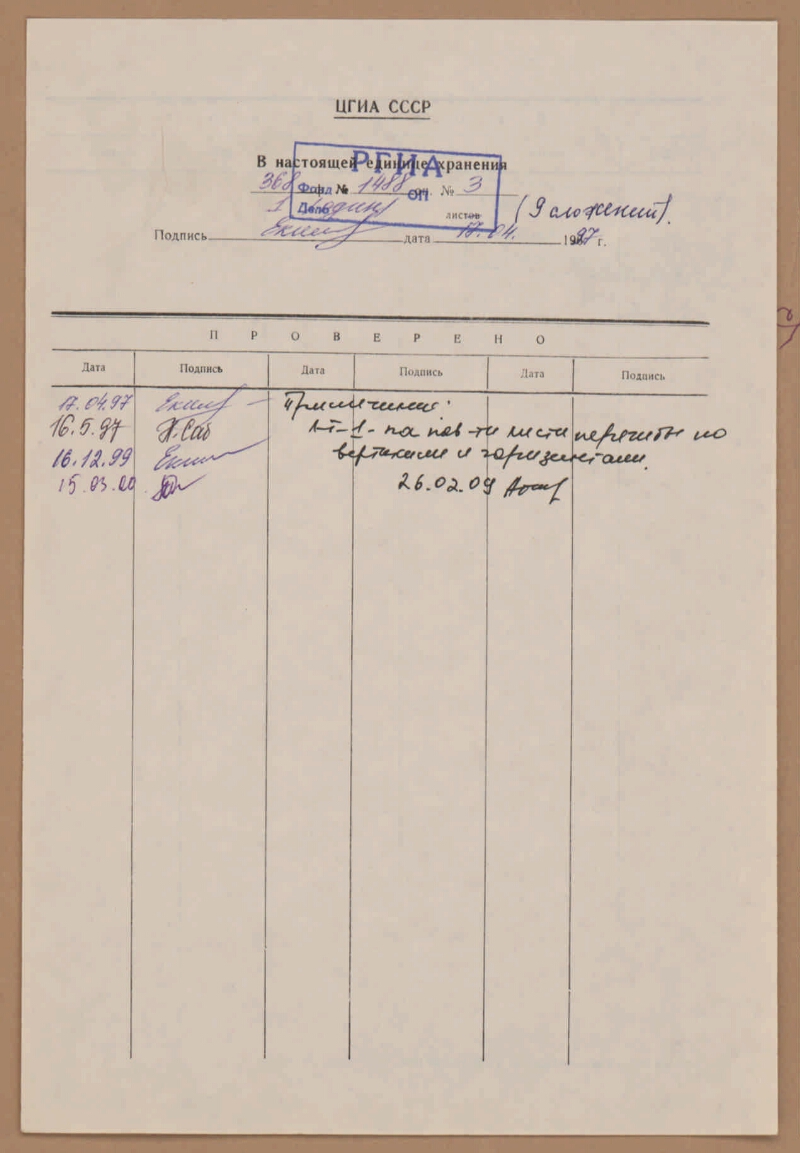 ЦГИА СССР
В настоящей единице хранения
РГИА
368 Фонд № 1488 оп. № 3
Дело 1 (один) листов (9 сложений).
Подпись дата 17.04. 1997 г.
ПРОВЕРЕНО
Дата Подпись Дата Подпись Дата Подпись
17.04.97 Примечание:
16.5.97 листа по
16.12.99 вертикали и горизонтали.
15.03.00 26.02.09